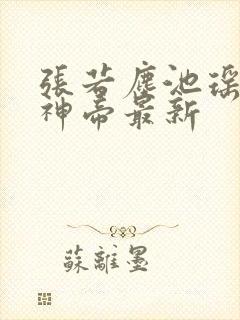 張若塵池瑤
神帝最新
蘇離墨